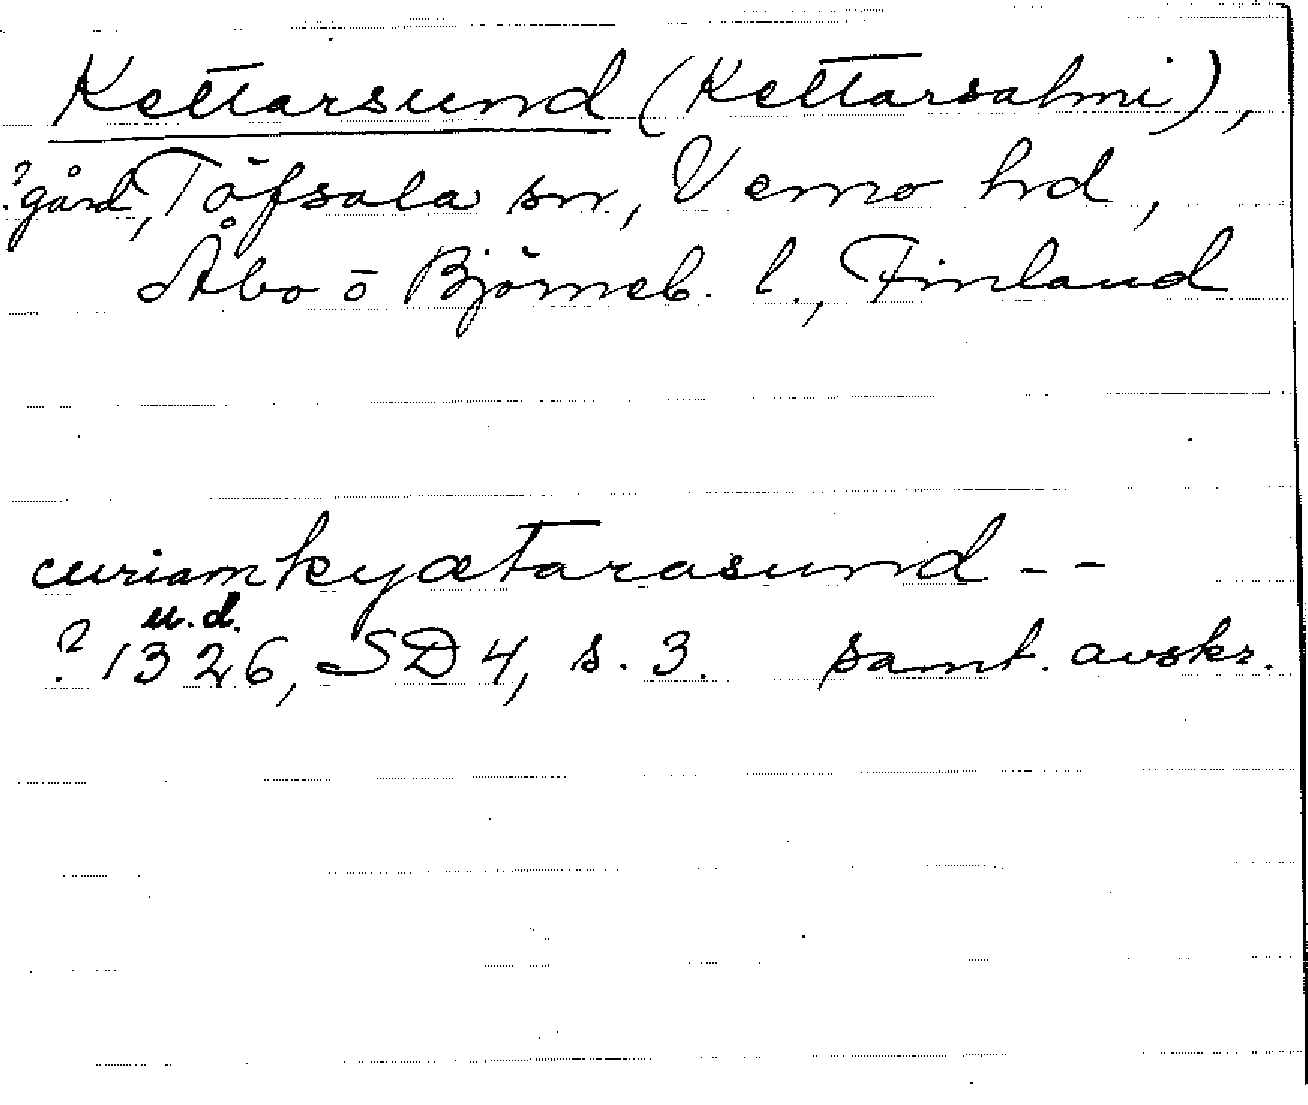 Kettarsund (Kettarsalmi),
? gård, Töfsala sn, Vemo hd,
Åbo o Björneb. l., Finland
curiam kyætarasund - -
u.d.
? 1326, SD 4, s. 3. samt. avskr.